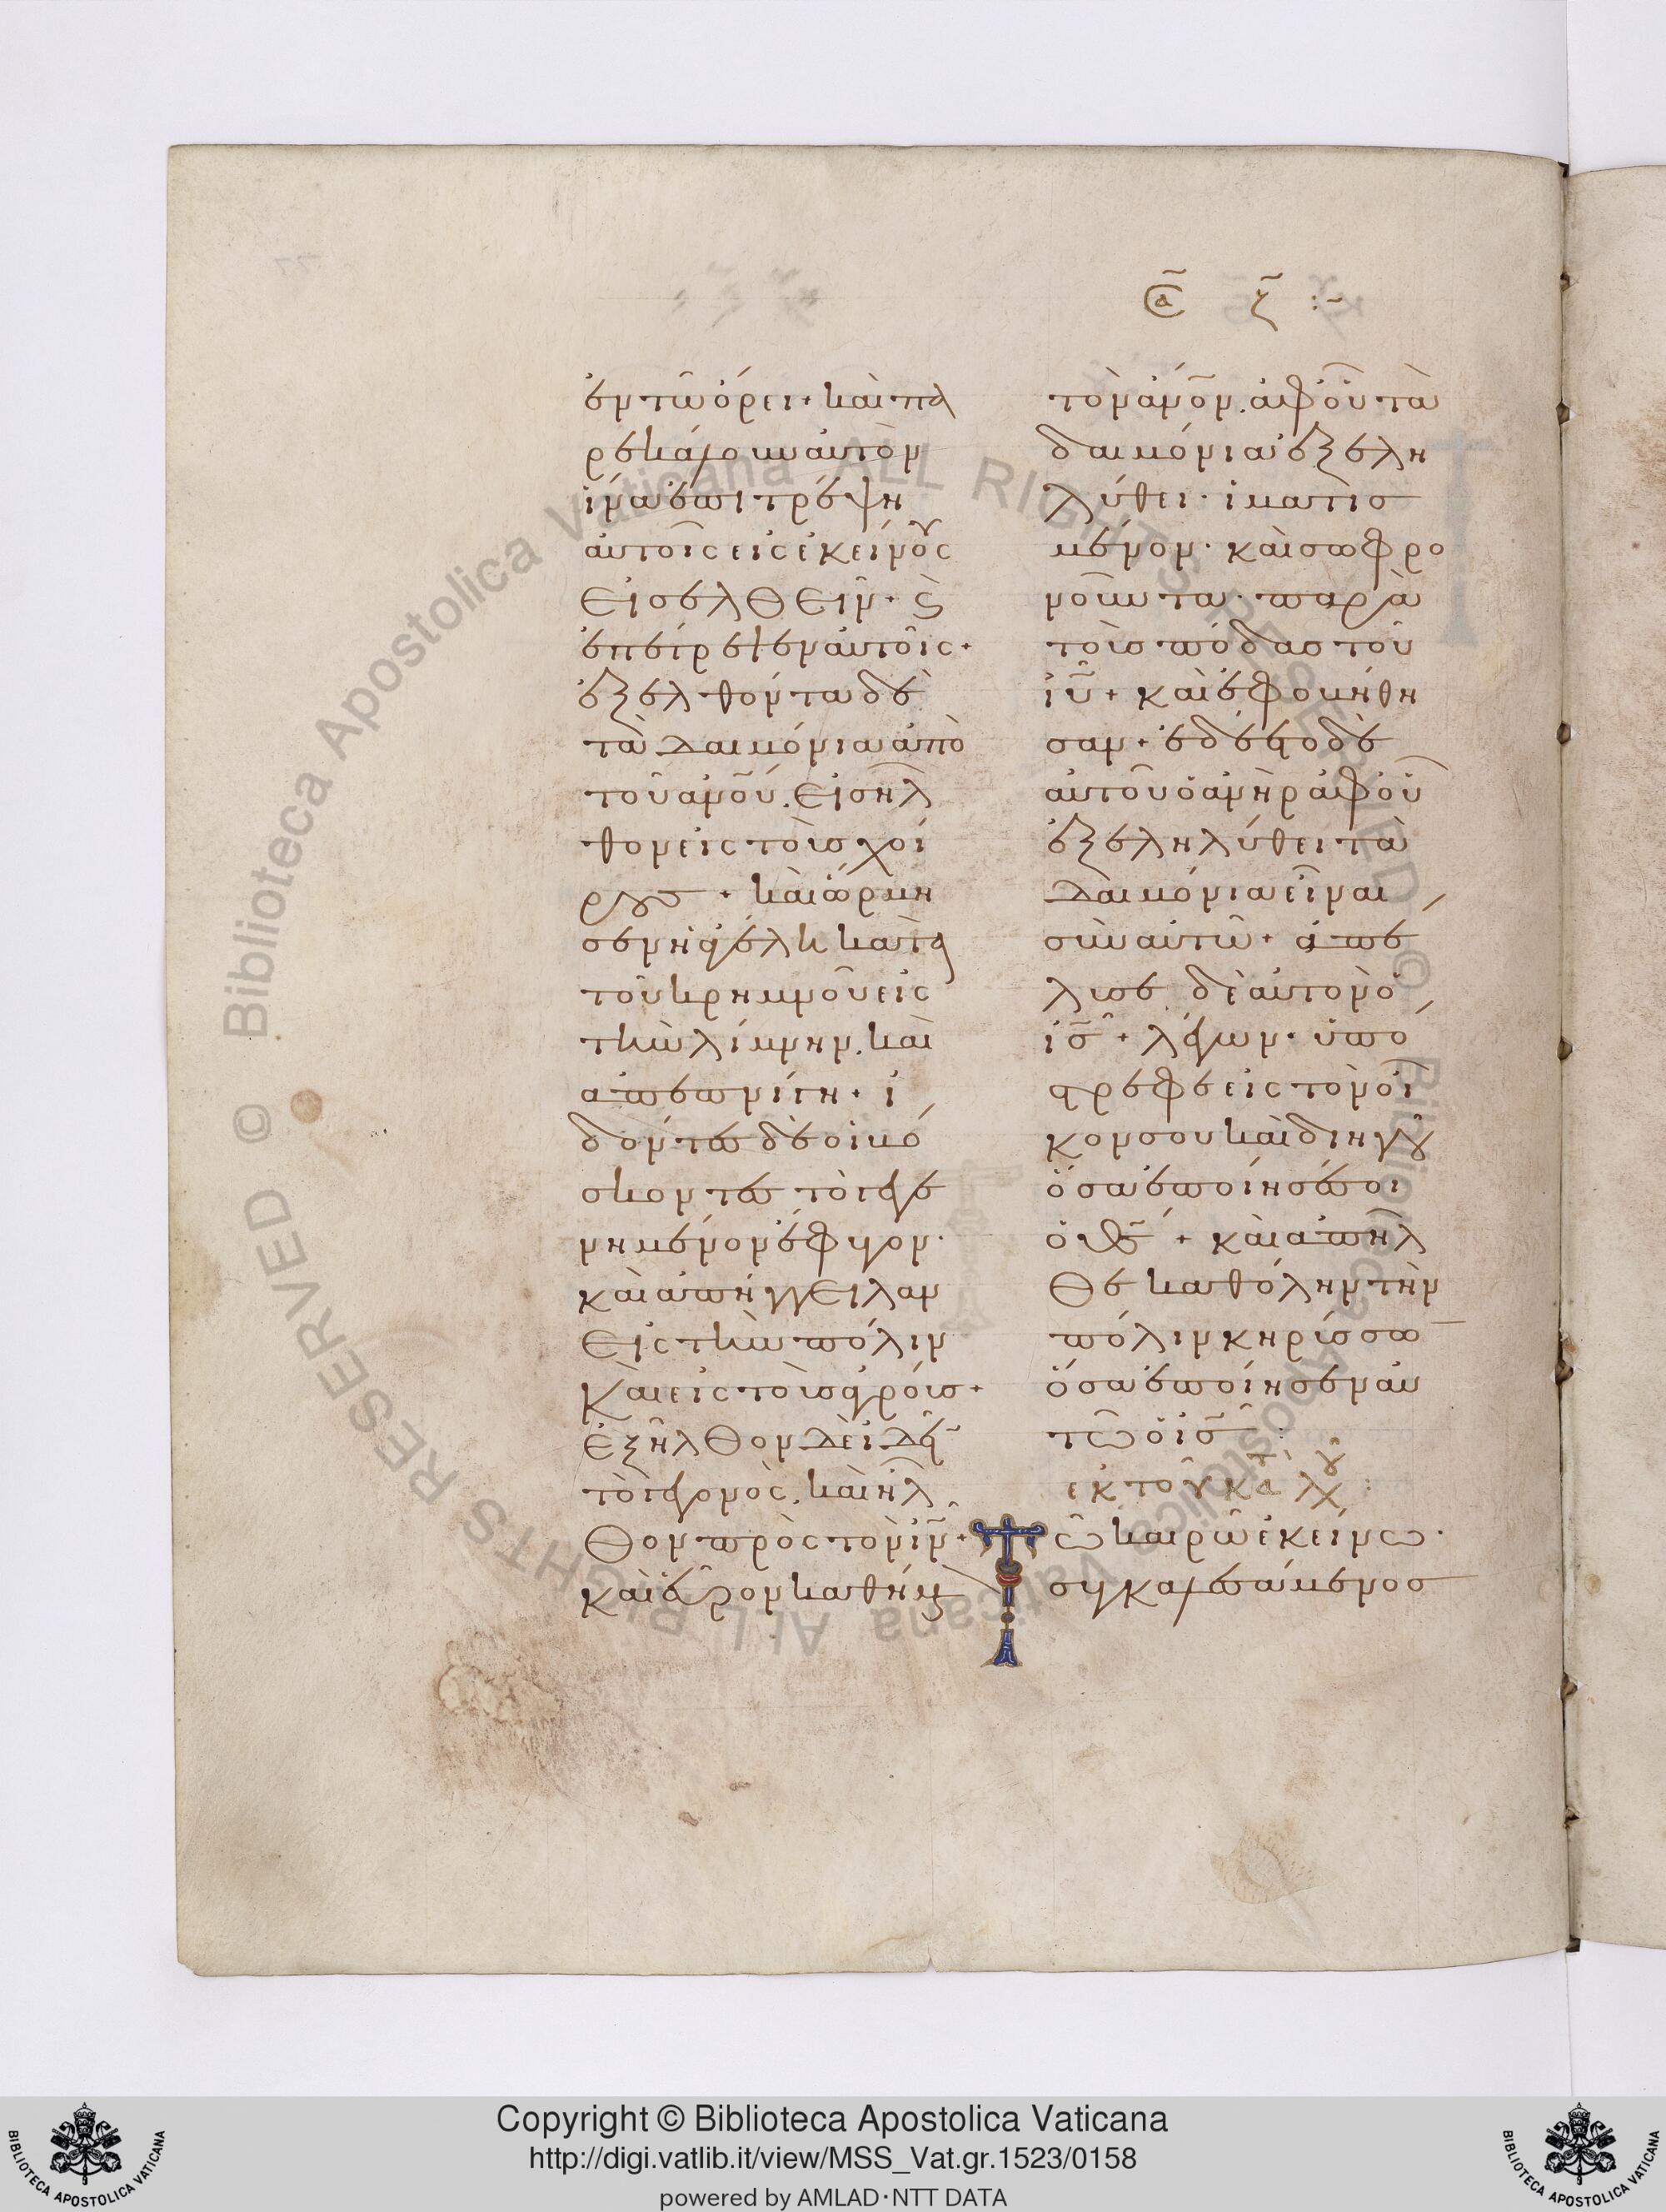 Σα ζ :~
ἐν τῶ ὄρει + καὶ πα
ρεκάλουν αὐτὸν
ἵνα ἐπιτρέψη
αὐτοῖς εἰς ἐκείνους
εἰσελθεῖν + ϗ
ἐπέτρεψεν αὐτοῖς +
ἐξελθόντα δὲ
τὰ δαιμόνια ἀπὸ
τοῦ ανου. εἰσῆλ
θον εἰς τοὺς χοί
ρους + καὶ ὥρμη
σεν ἡ ἀγέλη κατὰ
τοῦ κρημνοῦ εἰς
τὴν λίμνην. καὶ
ἀπεπνίγη + ἰ
δόντες δὲ οἱ βό
σκοντες τὸ γεγε
νημένον ἔφυγον·
καὶ ἀπήγγειλαν
εἰς τὴν πόλιν
καὶ εἰς τοὺς ἀγρούς +
ἐξῆλθον δὲ ἰδεῖν
τὸ γεγονὸς. καὶ ἦλ
θον πρὸς τὸν ιν +
καὶ εὗρον καθήμε
νον τὸν ανον. ἀφ' οὗ τὰ
δαιμόνια ἐξελη
λύθει· ἱματισ
μένον· καὶ σωφρο
νοῦντα· παρὰ
τοὺς πόδας τοῦ
ιυ + καὶ ἐφοβήθη
σαν + ἐδέετο δὲ
αὐτοῦ ὁ ἀνὴρ ἀφ' οὗ
ἐξεληλύθει τὰ
δαιμόνια εἶναι
σὺν αὐτῶ + ἀπέ
λυσε δὲ αὐτὸν ὁ
ις + λέγων· ὑπό
στρεφε εἰς τὸν οἶ
κον σου καὶ διηγοῦ
ὅσα ἐποίησέ σοι
ὁ θς + καὶ ἀπῆλ
θε καθ' ὅλην τὴν
πόλιν κηρύσσων
ὅσα ἐποίησεν αὐ
τῶ ὁ ις :
ἐκ τοῦ κατὰ λου :
Τῶ καιρῶ ἐκείνω·
συγκαλεσάμενος
Copyright © Biblioteca Apostolica Vaticana
http://digi.vatlib.it/view/MSS_Vat.gr.1523/0158
powered by AMLAD·NTT DATA